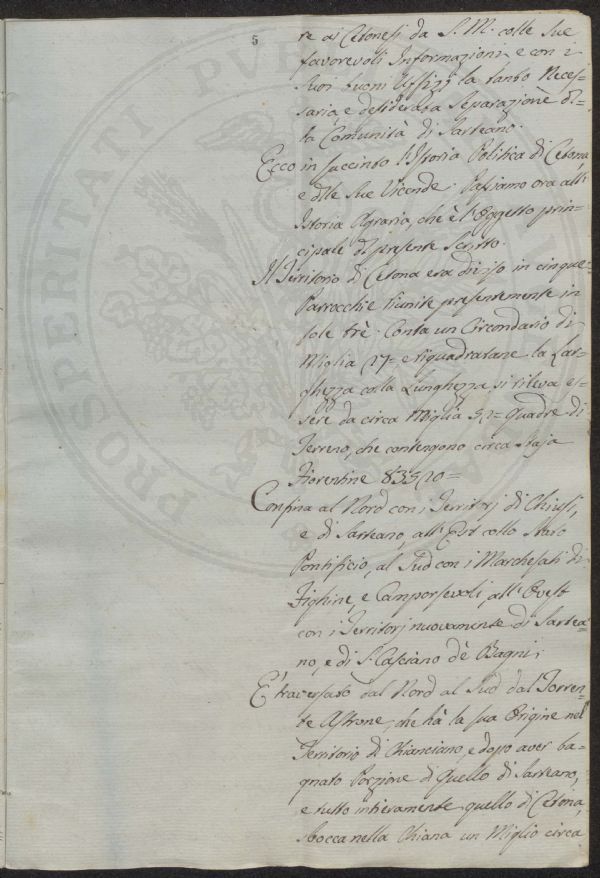 5
re ai Cetonesi da S. M. colle sue
favorevoli Informazioni, e con i
suoi buoni Uffizj la tanto neces-
saria, e desiderata separazione di=
ta Comunità di Sarteano.
Ecco in succinto l'Istoria Politica di Cetona
e dlle sue Vicende. Passiamo ora all'
Istoria Agraria, che è l'Oggetto prin-
cipale dl presente Scritto.
Il Territorio di Cetona era diviso in cinque
Parrocchie riunite presentemente in
sole trè. Conta un Circondario di
Miglia 27= e riquadratane la Lar-
ghezza colla Lunghezza si rileva es-
sere da circa Miglia Quadre di
Terreno, che contengono circa Staja
Fiorentine
Confina al Nord con i Territorj di Chiusi,
e di Sarteano, all'Est collo Stato
Pontificio, al Sud con i Marchesati di
Fighine, e Camporsevoli, all'Ovest
con i Territorj nuovamente di Sartea-
no, e di S. Casciano dè Bagni;
E' traversato dal Nord al Sud dal Torren-
te Astrone, che hà la sua Origine nel
Territorio di Chianciano, e dopo aver ba-
gnato Porzione di quello di Sarteano,
e tutto intieramente quello di Cetona,
sbocca nella Chiana un Miglio circa